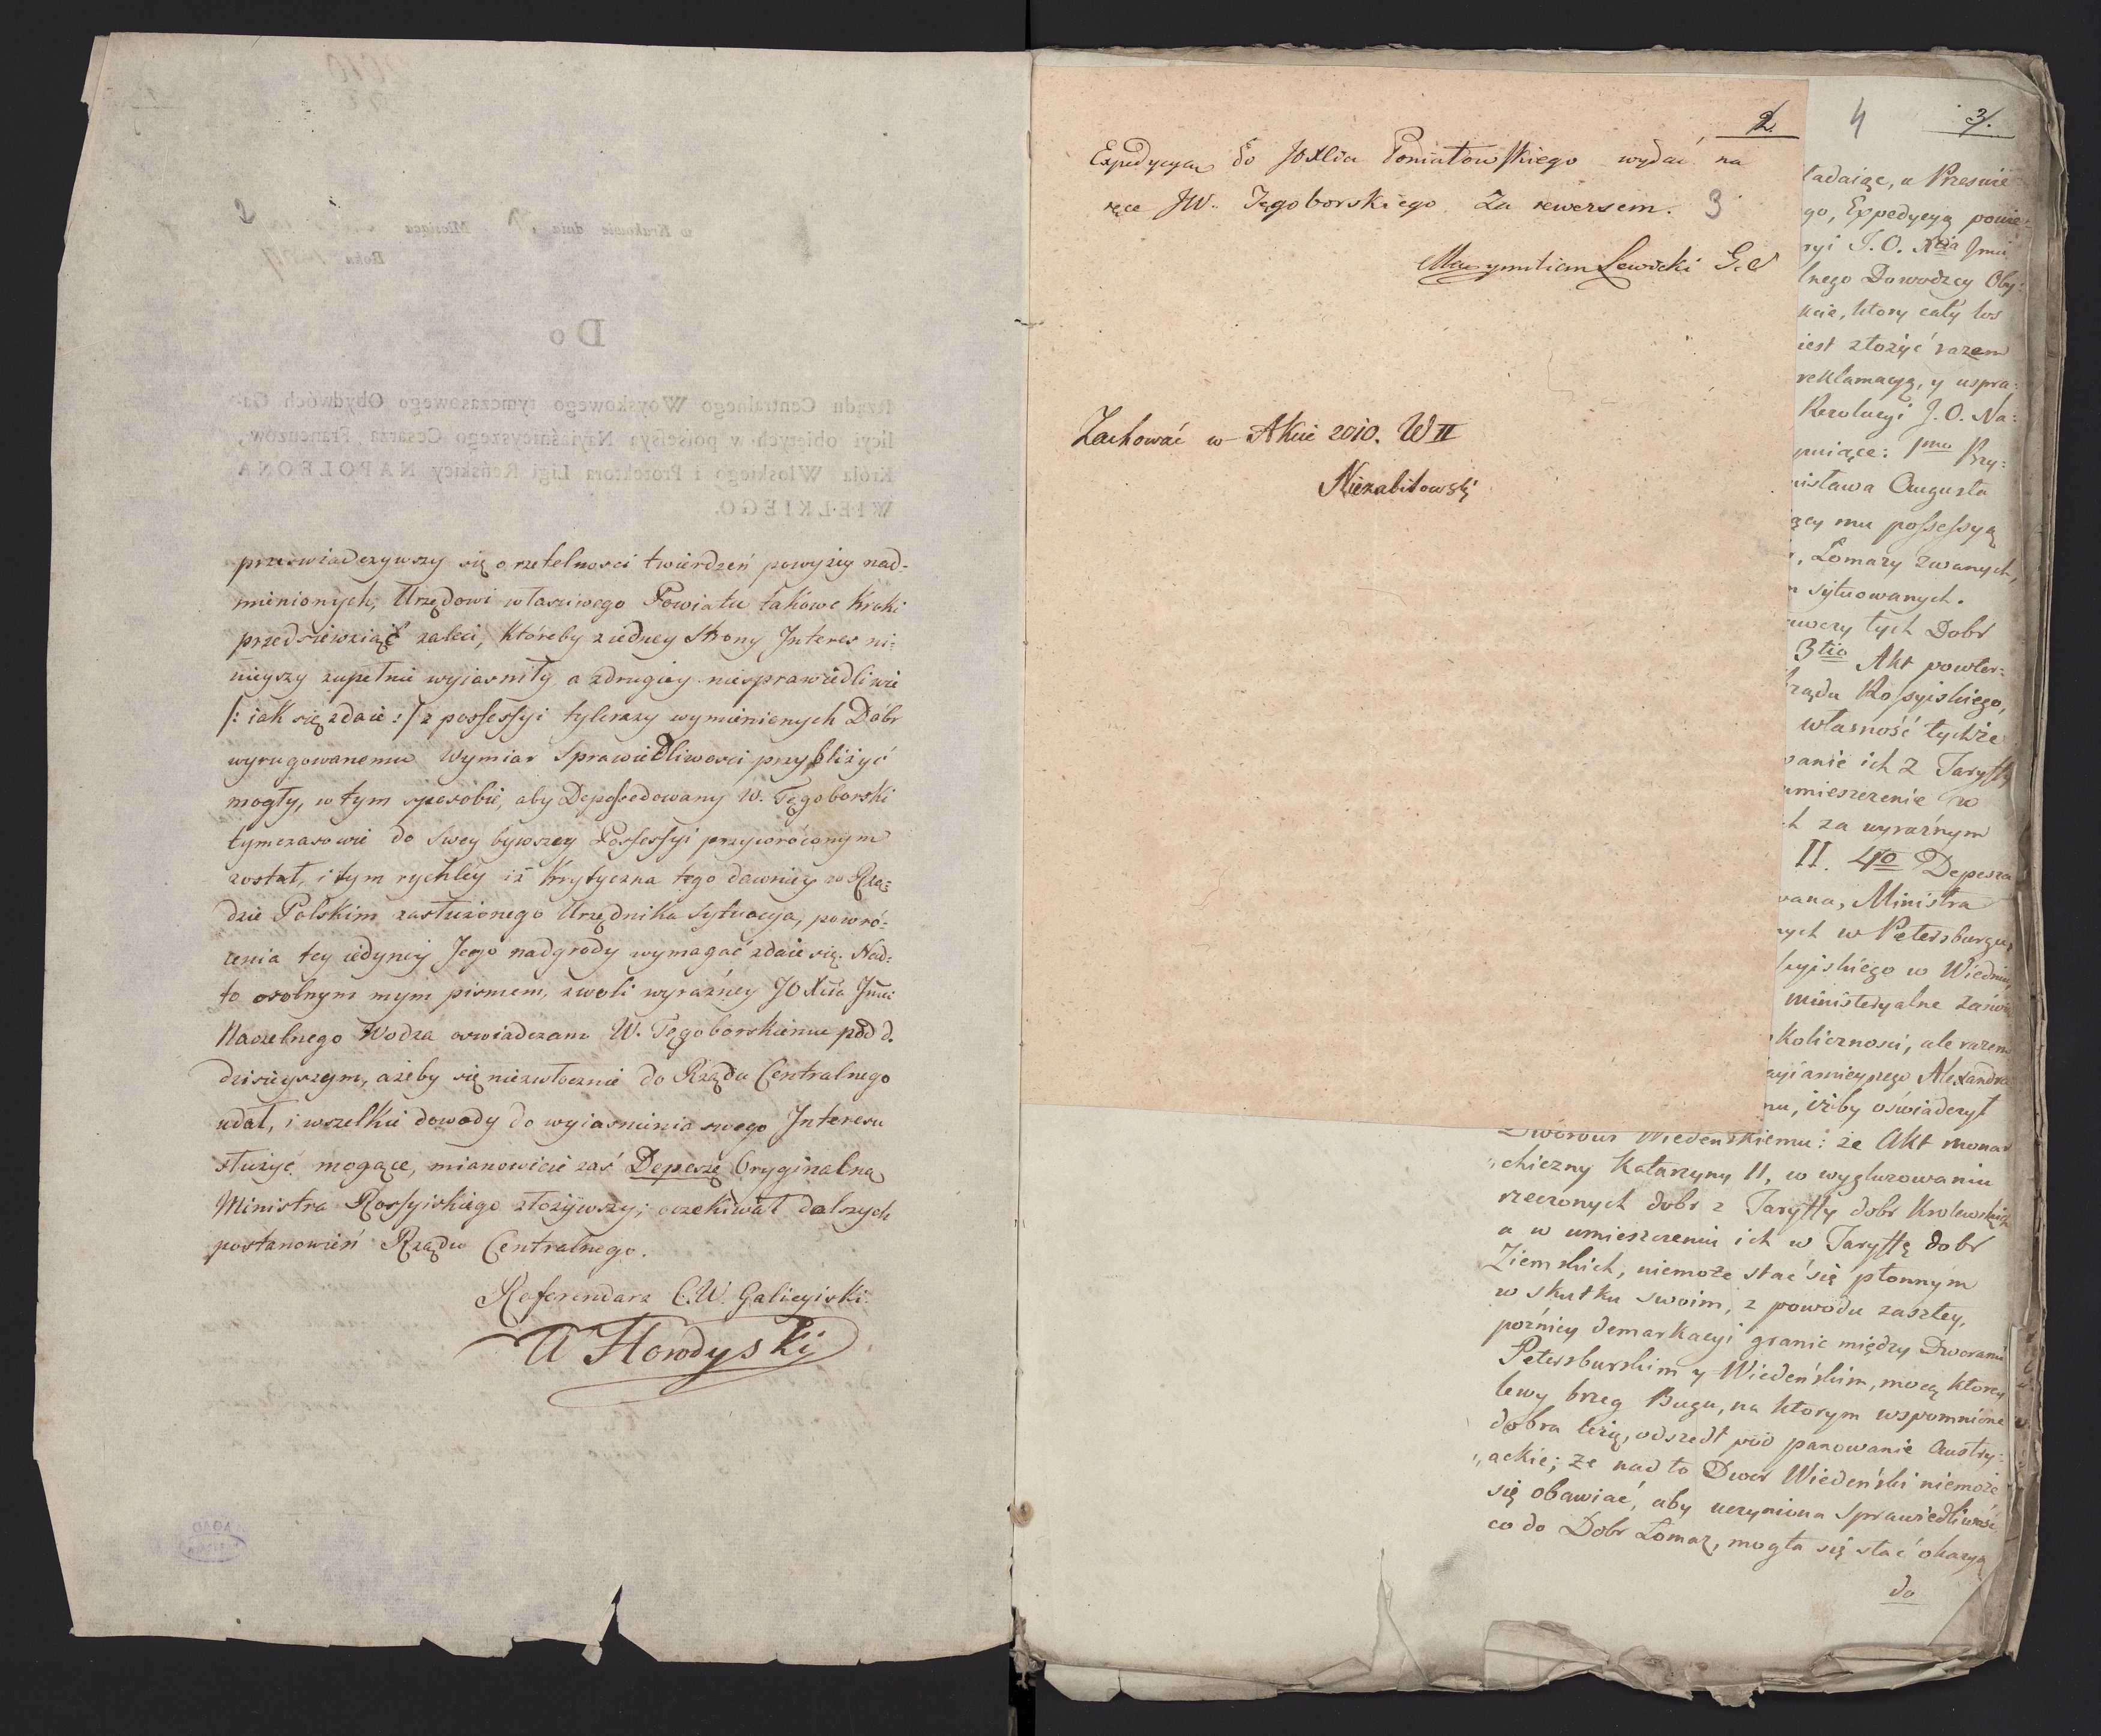 2
przeswiadczywszy się o rzetelnosci twierdzeń powyżey nad=
mienionych, Urzędowi własciwego Powiatu takowe Kroki
przedsiewziąć zaleci, któreby z iedney Strony Interes ni=
nieyszy zupełnie wyiasniły a zdrugiey niesprawiedliwie
/: iak się zdaie :/ z possessyi tylerazy wymienionych Dóbr
wyrugowanemu Wymiar Sprawiedliwosci przybliżyć
mogły, w tym sposobie, aby Depossedowany W. Tęgoborski
tymczasowie do Swey bywszey Possessyi przywróconym
został, i tym rychley iż krytyczna tego dawniey w Rzą=
dzie Polskim zasłużonego Urzędnika Sytuacya, powró=
cenia tey iedyney Jego nadgrody wymagać zdaie się. Nad=
to osobnym mym pismem, z woli wyraźney JO Xcia Jmci
Naczelnego Wodza oswiadczam W. Tęgoborskiemu pod d.
dzisieyszym, ażeby się niezwłocznie do Rządu Centralnego
udał, i wszelkie dowody do wyiasnienia swego Interesu
służyć mogące, mianowicie zaś Depeszę Oryginalną
Ministra Rossyiskiego złożywszy, oczekiwał dalszych
postanowień Rządu Centralnego.
Referendarz C.W. Galicyiski
A Horodyski
2.
Expedycyą do JOXcia Poniatowskiego wydać na
ręce JW. Tęgoborskiego Za rewersem. 3
Maxymilian Lewicki G. S
Zachować w Akcie 2010. W II
Niezabitowski
4 3/.
ładaiąc, a Prześwie
go, Expedycyą powie=
ryi J. O. Xcia Jmci
lnego Dowodzcy Oby=
kcie, ktory cały los
iest złożyć razem
reklamacyą, y uspra=
Rezolucyi J. O. Na=
pniące: 1mo Przy=
nisława Augusta
ący mu possessyą
Łomazy zwanych,
sytuowanych.
tych Dobr
3tio Akt powter=
rządu Rossyiskiego,
własność tychże
wanie ich z Taryffy
umieszczenie w
h za wyraźnym
II. 4to Depesza
wana, Ministra
nych w Petersburgu,
syiskiego w Wiedniu,
ministeryalne
koliczności, ale razem
ayiasnieyszego Alexandra
mu, iżby oświadczył
Dworowi Wiedeńskiemu: że Akt monar
„chiczny Katarzyny II, w wygluzowaniu
rzeczonych dobr z Taryffy dobr Krolewskich
a w umieszczeniu ich w Taryffę dobr
Ziemskich, niemoże stać się płonnym
w skutku swoim, z powodu zaszłey,
poźniey demarkacyi granic między Dworami
Petersburskim y Wiedeńskim, mocą ktorey
lewy brzeg Bugu, na ktorym wspomnione
dobra leżą, odszedł pod panowanie Austry=
„ackie; że nad to Dwor Wiedeński niemoże
się obawiać, aby uczyniona Sprawiedliwość
co do Dobr Łomaz, mogła się stać okazyą
do